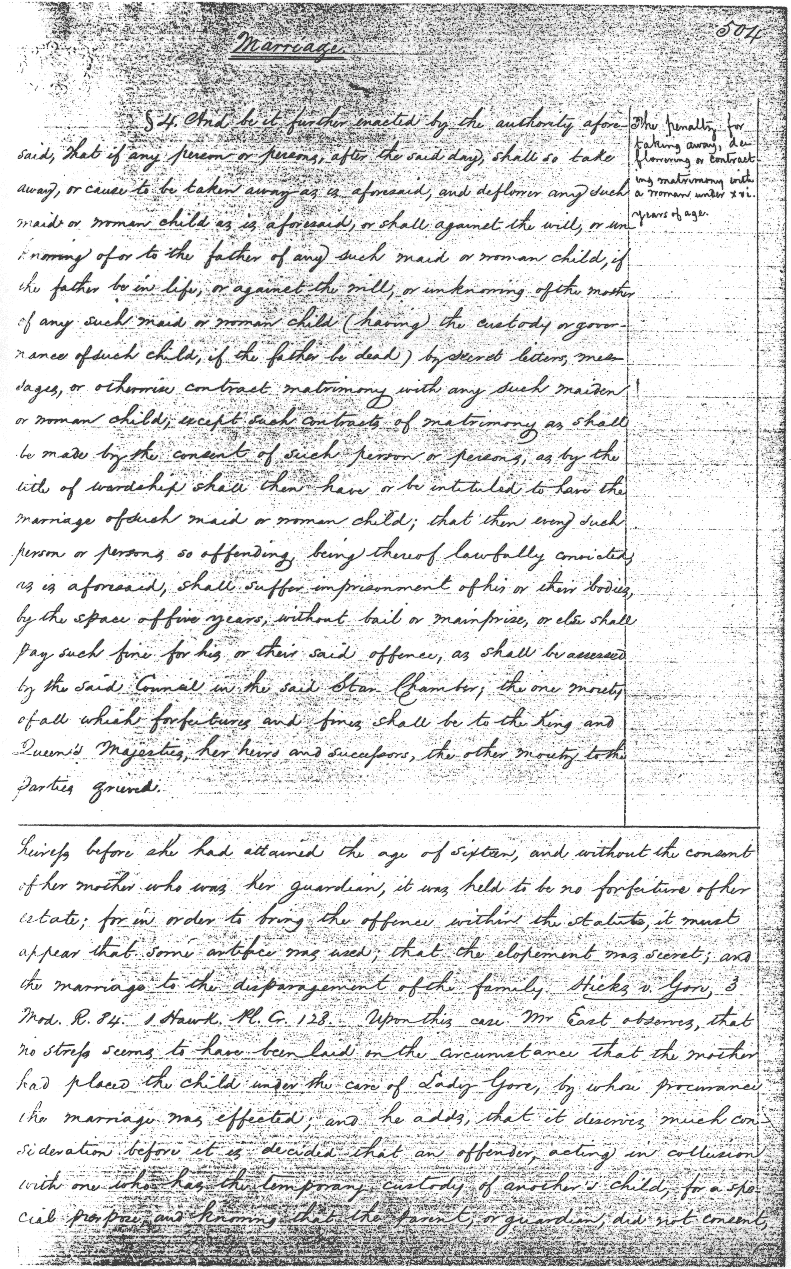 504
Marriage.
§4. And be it further enacted by the authority afore-
said, that if any person or persons, after the said day, shall so take
away, or cause to be taken away as is aforesaid, and deflower any such
maid or woman child as is aforesaid, or shall against the will, or un
knowing of or to the father of any such maid or woman child, if
the father be in life, or against the will, or unknowing of the mother
of any such maid or woman child (having the custody or gover-
nance of such child, if the father be dead) by secret letters, mes-
sages, or otherwise contract matrimony with any such maiden
or woman child, except such contracts of matrimony as shall
be made by the consent of such person or persons, as by the
title of wardship shall then have or be intituled to have the
marriage of such maid or woman child; that then every such
person or persons so offending, being thereof lawfally convicted
as is aforesaid, shall suffer imprisonment of his or their bodies,
by the space of five years, without bail or mainprise, or else shall
pay such fine for his or their said offence, as shall be assessed
by the said Council in the said Star Chamber; the one moiety
of all which forfeitures and fines shall be to the King and
Queen's Majesties, her heirs and successors, the other moiety to the
parties grieved.
The penalty for
taking away, de-
flowering or contract-
ing matrimony with
a woman under xvi.
years of age.
heiress before she had attained the age of sixteen, and without the consent
of her mother who was her guardian, it was held to be no forfeiture of her
estate; for in order to bring the offence within the statute, it must
appear that some artiface was used; that the elopement was secret; and
the marriage to the disparagement of the family. Hicks v. Gore, 3
Mod. R. 84. 1 Hawk. Pl. Cr. 128. Upon this case Mr East observes, that
no stress seems to have been laid on the circumstance that the mother
had placed the child under the care of Lady Gore, by whose procurance
the marriage was effected; and he adds, that it deserves much con-
sideration before it is decided that an offender, acting in collusion
with one who has the temporary custody of another's child, for a spe-
cial purpose, and knowing that the parent, or guardian, did not consent,